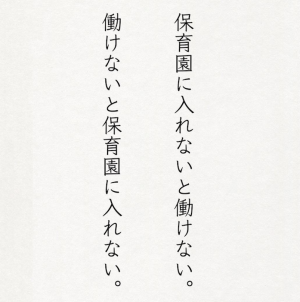 保育園に入れないと働けない。
働けないと保育園に入れない。